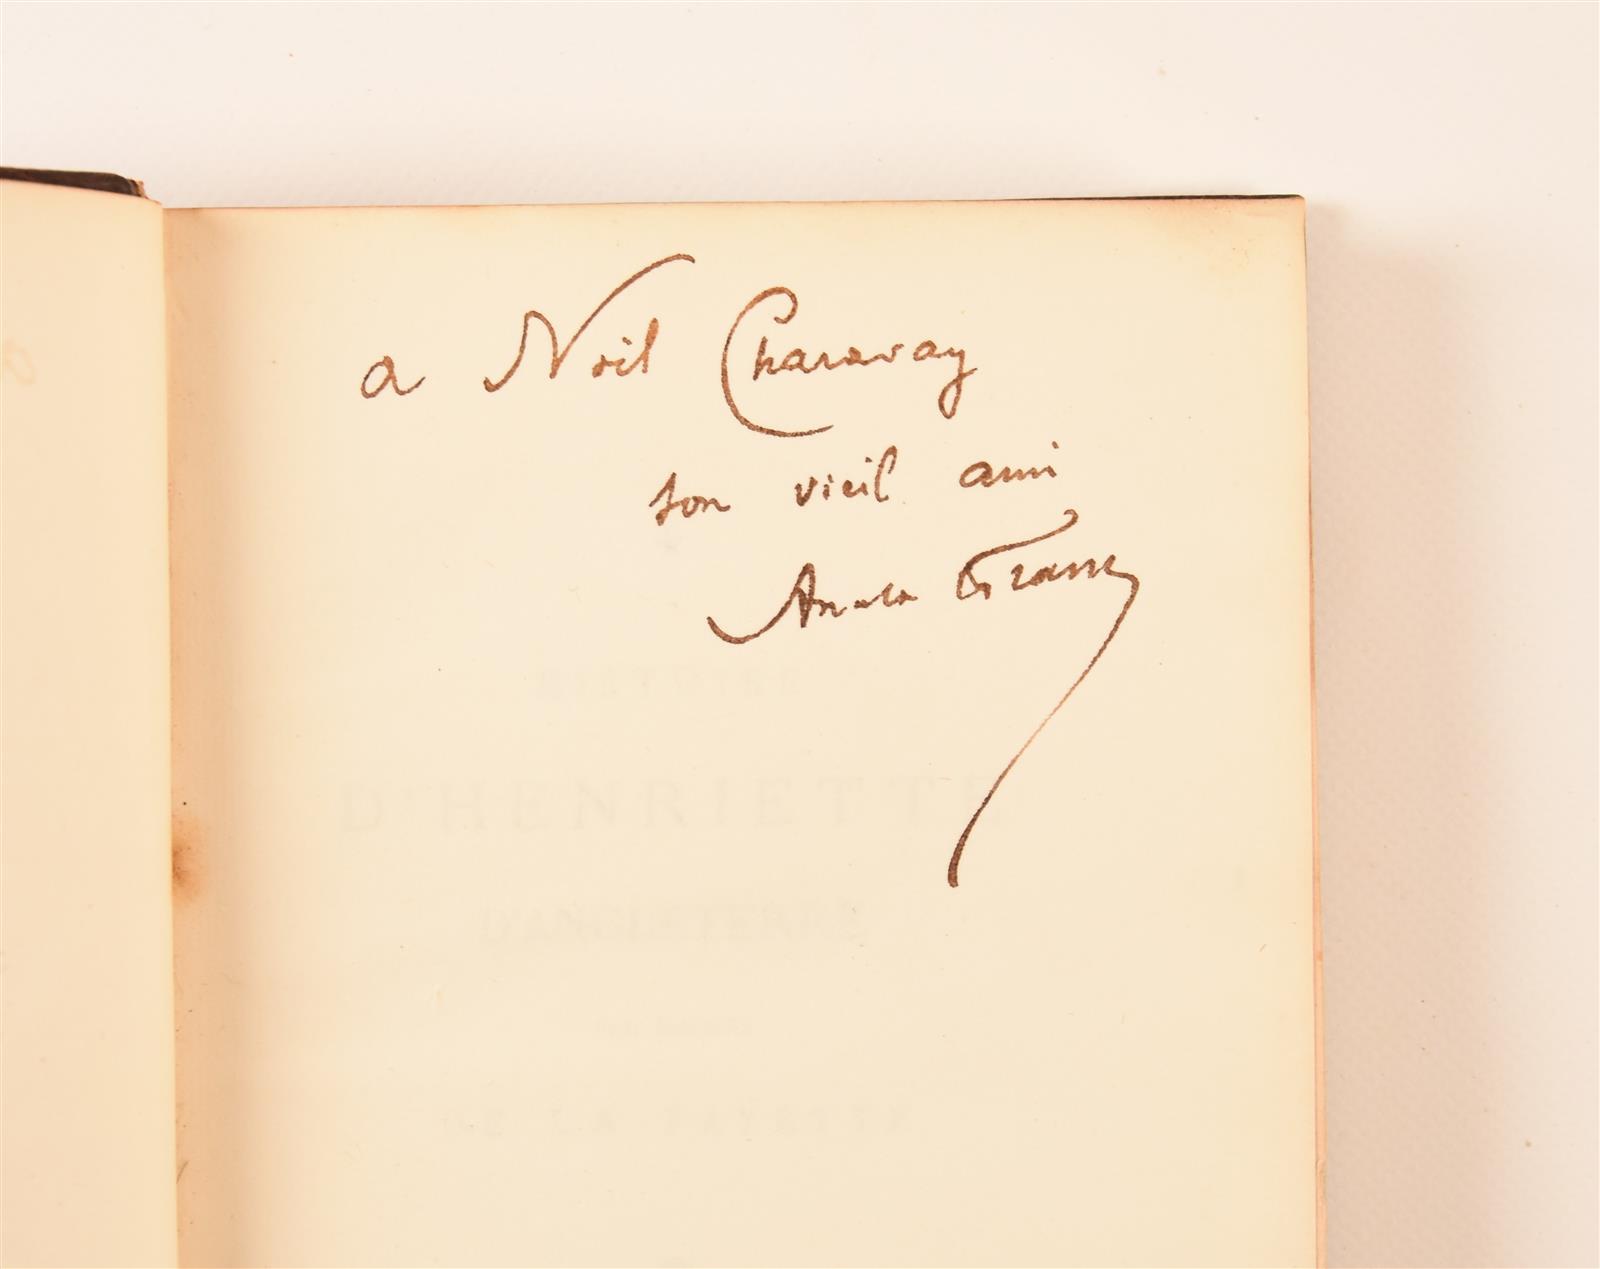 a Noël Charavay
son vieil ami
Anatole France
HISTOIRE
D'HENRIETTE
D'ANGLETERRE
DE LA FAYETTE